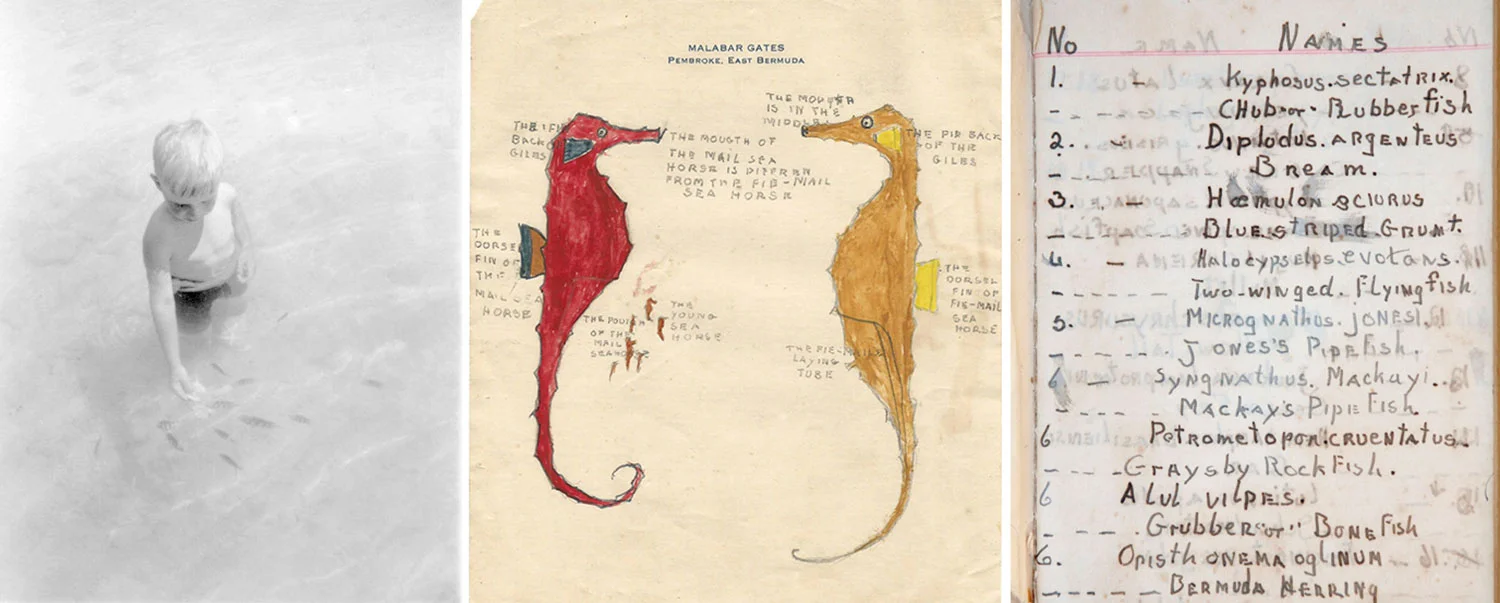 MALABAR GATES
PEMBROKE, EAST BERMUDA
THE MOUTH
IS IN THE
MIDDEL
THE
BACK
GILBS
THE MOUGTH OF
THE MAIL SEA
HORSE IS DIFFREN
FROM THE FIE-MAIL
SEA HORSE
THE FIR BACK
OF THE
GILBS
THE
DORSEL
FIN OF
THE
MAIL SEA
HORSE
THE POUTCH
OF THE
MAIL
SEAHORSE
THE
YOUNG
SEA
HORSE
THE
DORSEL
FIN OF
FIE-MAIL
SEA
HORSE
THE FIE-MAIL
LAYING
TUBE
No NAMES
1. - Kyphosus.sectatrix.
- - - - - CHub-or- Rubberfish
2. - Diplodus.ARgenteus
- - - - Bream.
3. - Hæmulon sciurus
- - - - - Blue.striped.Grunt.
4. - Halocypselps.evotans.
- - - - - - Two-winged.Flyingfish
5. - Micrognathus.jonesi.
- - - - - Jones's Pipefish.
6 - Syngnathus.Mackayi..
- - - - - Mackay's Pipe Fish.
6 Petrometopon.cruentatus.
- - - -Graysby RockFish.
6 Alul vilpes.
- - - -Grubber"or" Bone Fish
6. Opisthonema oglinum
- - - - - Bermuda Herring